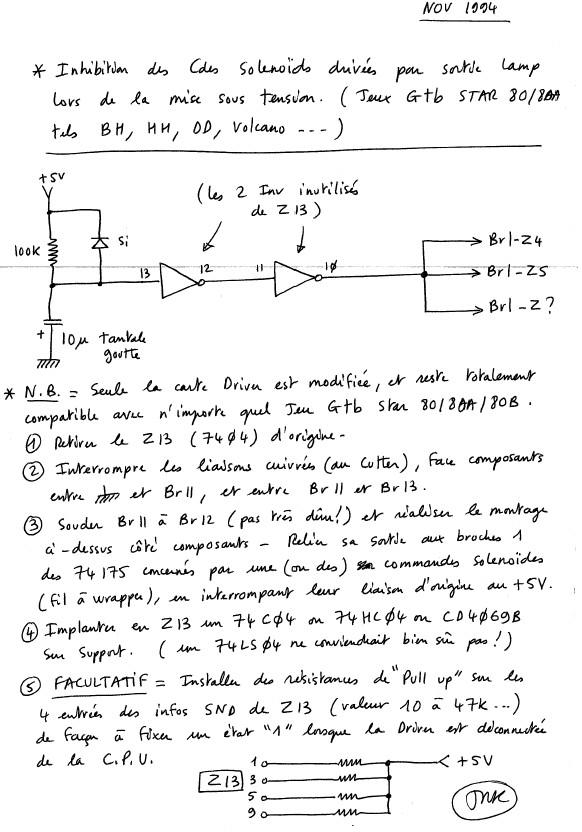 NOV 1994
* Inhibition des Cdes Solenoïds drivés par sortie Lamp
lors de la mise sous tension. (Jeux Gtb STAR 80/80A
tels BH, HH, OD, Volcano ---)
+5V
(les 2 Inv inutilisés
de Z13)
100K
Si
13
12
11
10
Br1-Z4
Br1-Z5
Br1-Z?
+
10µ tantale
goutte
* N.B. = Seule la carte Driver est modifiée, et reste totalement
compatible avec n'importe quel Jeu Gtb Star 80/80A/80B.
① Retirer le Z13 (74Ø4) d'origine-
② Interrompre les liaisons cuivrés (au Cutter), face composants
entre et Br11, et entre Br11 et Br13.
③ Souder Br11 à Br12 (pas très dûr!) et réaliser le montage
ci-dessus côté composants - Relier sa sortie aux broches 1
des 74175 concernés par une (ou des) commandes solenoïdes
(fil à wrapper), en interrompant leur liaison d'origine au +5V.
④ Implanter en Z13 un 74CØ4 ou 74HCØ4 ou CD4Ø69B
sur support. (un 74LSØ4 ne conviendrait bien sûr pas!)
⑤ FACULTATIF = Installer des resistances de "Pull up" sur les
4 entrées des infos SND de Z13 (valeur 10 à 47K...)
de façon à fixer un état "1" lorsque la Driver est déconnectée
de la C.P.U.
Z13
1
3
5
9
+5V